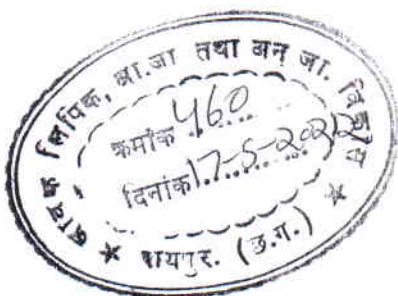 आवक लिपिक, आ.जा तथा अनु जा. विकास
क्रमांक 460
दिनांक 17-5-202
रायपुर. (छ.ग.)